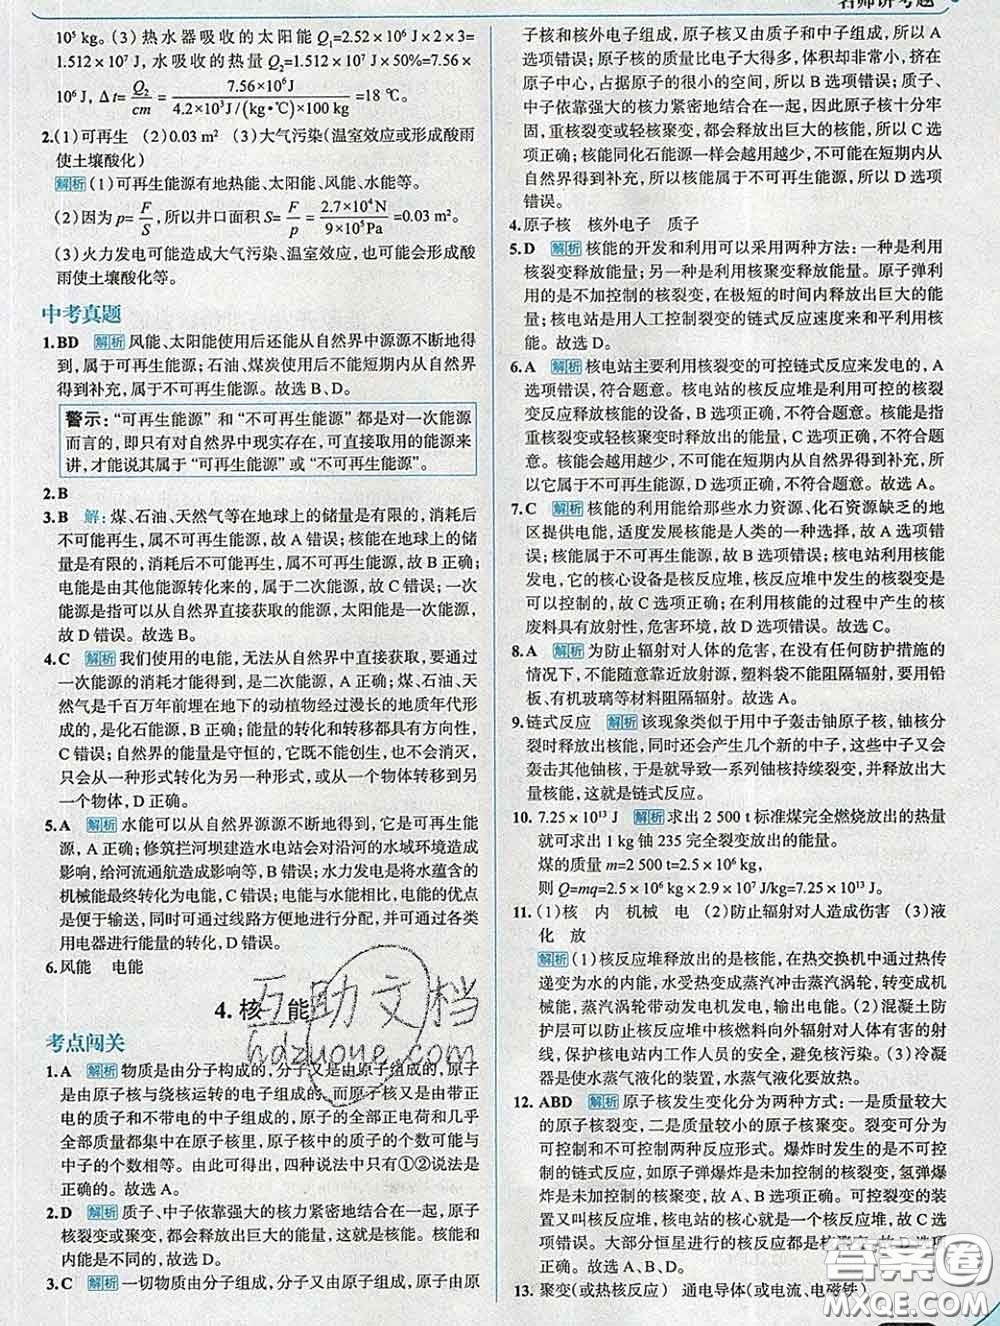 名师讲考题
10⁵ kg。(3)热水器吸收的太阳能Q₁=2.52×10⁶ J×2×3=
1.512×10⁷ J,水吸收的热量Q₂=1.512×10⁷ J×50%=7.56×
10⁶ J,Δt=Q₂/cm=7.56×10⁶J/(4.2×10³J/(kg•℃)×100 kg)=18 ℃。
2.(1)可再生 (2)0.03 m² (3)大气污染(温室效应或形成酸雨
使土壤酸化)
解析 (1)可再生能源有地热能、太阳能、风能、水能等。
(2)因为p=F/S,所以井口面积S=F/p=2.7×10⁴N/9×10⁵Pa=0.03 m²。
(3)火力发电可能造成大气污染、温室效应,也可能会形成酸
雨使土壤酸化等。
中考真题
1.BD 解析 风能、太阳能使用后还能从自然界中源源不断地得
到,属于可再生能源;石油、煤炭使用后不能短期内从自然界
得到补充,属于不可再生能源。故选B、D。
警示:“可再生能源”和“不可再生能源”都是对一次能源
而言的,即只有对自然界中现实存在,可直接取用的能源来
讲,才能说其属于“可再生能源”或“不可再生能源”。
2.B
3.B 解:煤、石油、天然气等在地球上的储量是有限的,消耗后
不可能再生,属于不可再生能源,故A错误;核能在地球上的储
量是有限的,消耗后不可能再生,属于不可再生能源,故B正确;
电能是由其他能源转化来的,属于二次能源,故C错误;一次
能源是指可以从自然界直接获取的能源,太阳能是一次能源,
故D错误。故选B。
4.C 解析 我们使用的电能,无法从自然界中直接获取,要通过
一次能源的消耗才能得到,是二次能源,A正确;煤、石油、天
然气是千百万年前埋在地下的动植物经过漫长的地质年代形
成的,是化石能源,B正确;能量的转化和转移都具有方向性,
C错误;自然界的能量是守恒的,它既不能创生,也不会消灭,
只会从一种形式转化为另一种形式,或从一个物体转移到另
一个物体,D正确。
5.A 解析 水能可以从自然界源源不断地得到,它是可再生能
源,A正确;修筑拦河坝建造水电站会对沿河的水域环境造成
影响,给河流通航造成影响等,B错误;水力发电是将水蕴含的
机械能最终转化为电能,C错误;电能与水能相比,电能的优点
是便于输送,同时可通过线路方便地进行分配,并可通过各类
用电器进行能量的转化,D错误。
6.风能 电能
4.核 能
考点闯关
1.A 解析 物质是由分子构成的,分子又是由原子组成的,原子
是由原子核与绕核运转的电子组成的,而原子核又是由带正
电的质子和不带电的中子组成的,原子的全部正电荷和几乎
全部质量都集中在原子核里,原子核中的质子的个数可能与
中子的个数相等。由此可得出,四种说法中只有①②说法是
正确的。故选A。
2.D 解析 质子、中子依靠强大的核力紧密地结合在一起,原子
核裂变或聚变,都会释放出巨大的能量,这就是核能。核能和
内能是不同的,故选D。
3.C 解析 一切物质由分子组成,分子又由原子组成,原子由原
子核和核外电子组成,原子核又由质子和中子组成,所以A
选项错误;原子核的质量比电子大得多,体积却非常小,挤在
原子中心,占据原子的很小的空间,所以B选项错误;质子、
中子依靠强大的核力紧密地结合在一起,因此原子核十分牢
固,重核裂变或轻核聚变,都会释放出巨大的核能,所以C选
项正确;核能同化石能源一样会越用越少,不可能在短期内从
自然界得到补充,所以核能属于不可再生能源,所以D选项
错误。
4.原子核 核外电子 质子
5.D 解析 核能的开发和利用可以采用两种方法:一种是利用
核裂变释放能量;另一种是利用核聚变释放能量。原子弹利
用的是不加控制的核裂变,在极短的时间内释放出巨大的能
量;核电站是用人工控制裂变的链式反应速度来和平利用核
能。故选D。
6.A 解析 核电站主要利用核裂变的可控链式反应来发电的,A
选项错误,符合题意。核电站的核反应堆是利用可控的核裂
变反应释放核能的设备,B选项正确,不符合题意。核能是指
重核裂变或轻核聚变时释放出的能量,C选项正确,不符合题
意。核能会越用越少,不可能在短期内从自然界得到补充,所
以它属于不可再生能源,D选项正确,不符合题意。故选A。
7.C 解析 核能的利用能给那些水力资源、化石资源缺乏的地
区提供电能,适度发展核能是人类的一种选择,故A选项错
误;核能属于不可再生能源,故B选项错误;核电站利用核能
发电,它的核心设备是核反应堆,核反应堆中发生的核裂变是
可以控制的,故C选项正确;在利用核能的过程中产生的核
废料具有放射性,危害环境,故D选项错误。故选C。
8.A 解析 为防止辐射对人体的危害,在没有任何防护措施的
情况下,不能随意靠近放射源,塑料袋不能阻隔辐射,要用铅
板、有机玻璃等材料阻隔辐射。故选A。
9.链式反应 解析 该现象类似于用中子轰击铀原子核,铀核分
裂时释放出核能,同时还会产生几个新的中子,这些中子又会
轰击其他铀核,于是就导致一系列铀核持续裂变,并释放出大
量核能,这就是链式反应。
10.7.25×10¹³ J 解析 求出2 500 t标准煤完全燃烧放出的热量
就可求出1 kg铀235完全裂变放出的能量。
煤的质量m=2 500 t=2.5×10⁶ kg,
则Q=mq=2.5×10⁶ kg×2.9×10⁷ J/kg=7.25×10¹³ J。
11.(1)核 内 机械 电 (2)防止辐射对人造成伤害 (3)液
化 放
解析 (1)核反应堆释放的是核能,在热交换机中通过热传递
变为水的内能,水受热变成高温蒸汽冲击蒸汽涡轮,转变成机
械能,蒸汽涡轮带动发电机发电,输出电能。(2)混凝土防
护层可以防止核反应堆中核燃料向外辐射对人体有害的射
线,保护核电站内工作人员的安全,避免核污染。(3)冷凝
器是使水蒸气液化的装置,水蒸气液化要放热。
12.ABD 解析 原子核发生变化分为两种方式:一是质量较大
的原子核裂变,二是质量较小的原子核聚变。裂变可分为
可控制和不可控制两种反应形式。爆炸时发生的是不可控
制的链式反应,如原子弹爆炸是未加控制的核裂变,氢弹爆
炸是未加控制的核聚变,故A、B选项正确。可控裂变的装
置又叫核反应堆,核电站的核心就是一个核反应堆,故C选
项错误。大部分恒星进行的核反应都是核聚变,故D选项
正确。故选ABD。
13.聚变(或热核反应) 通电导体(或电流、电磁铁)
互助文档
hdzuone.com
答案圈
MXQE.COM